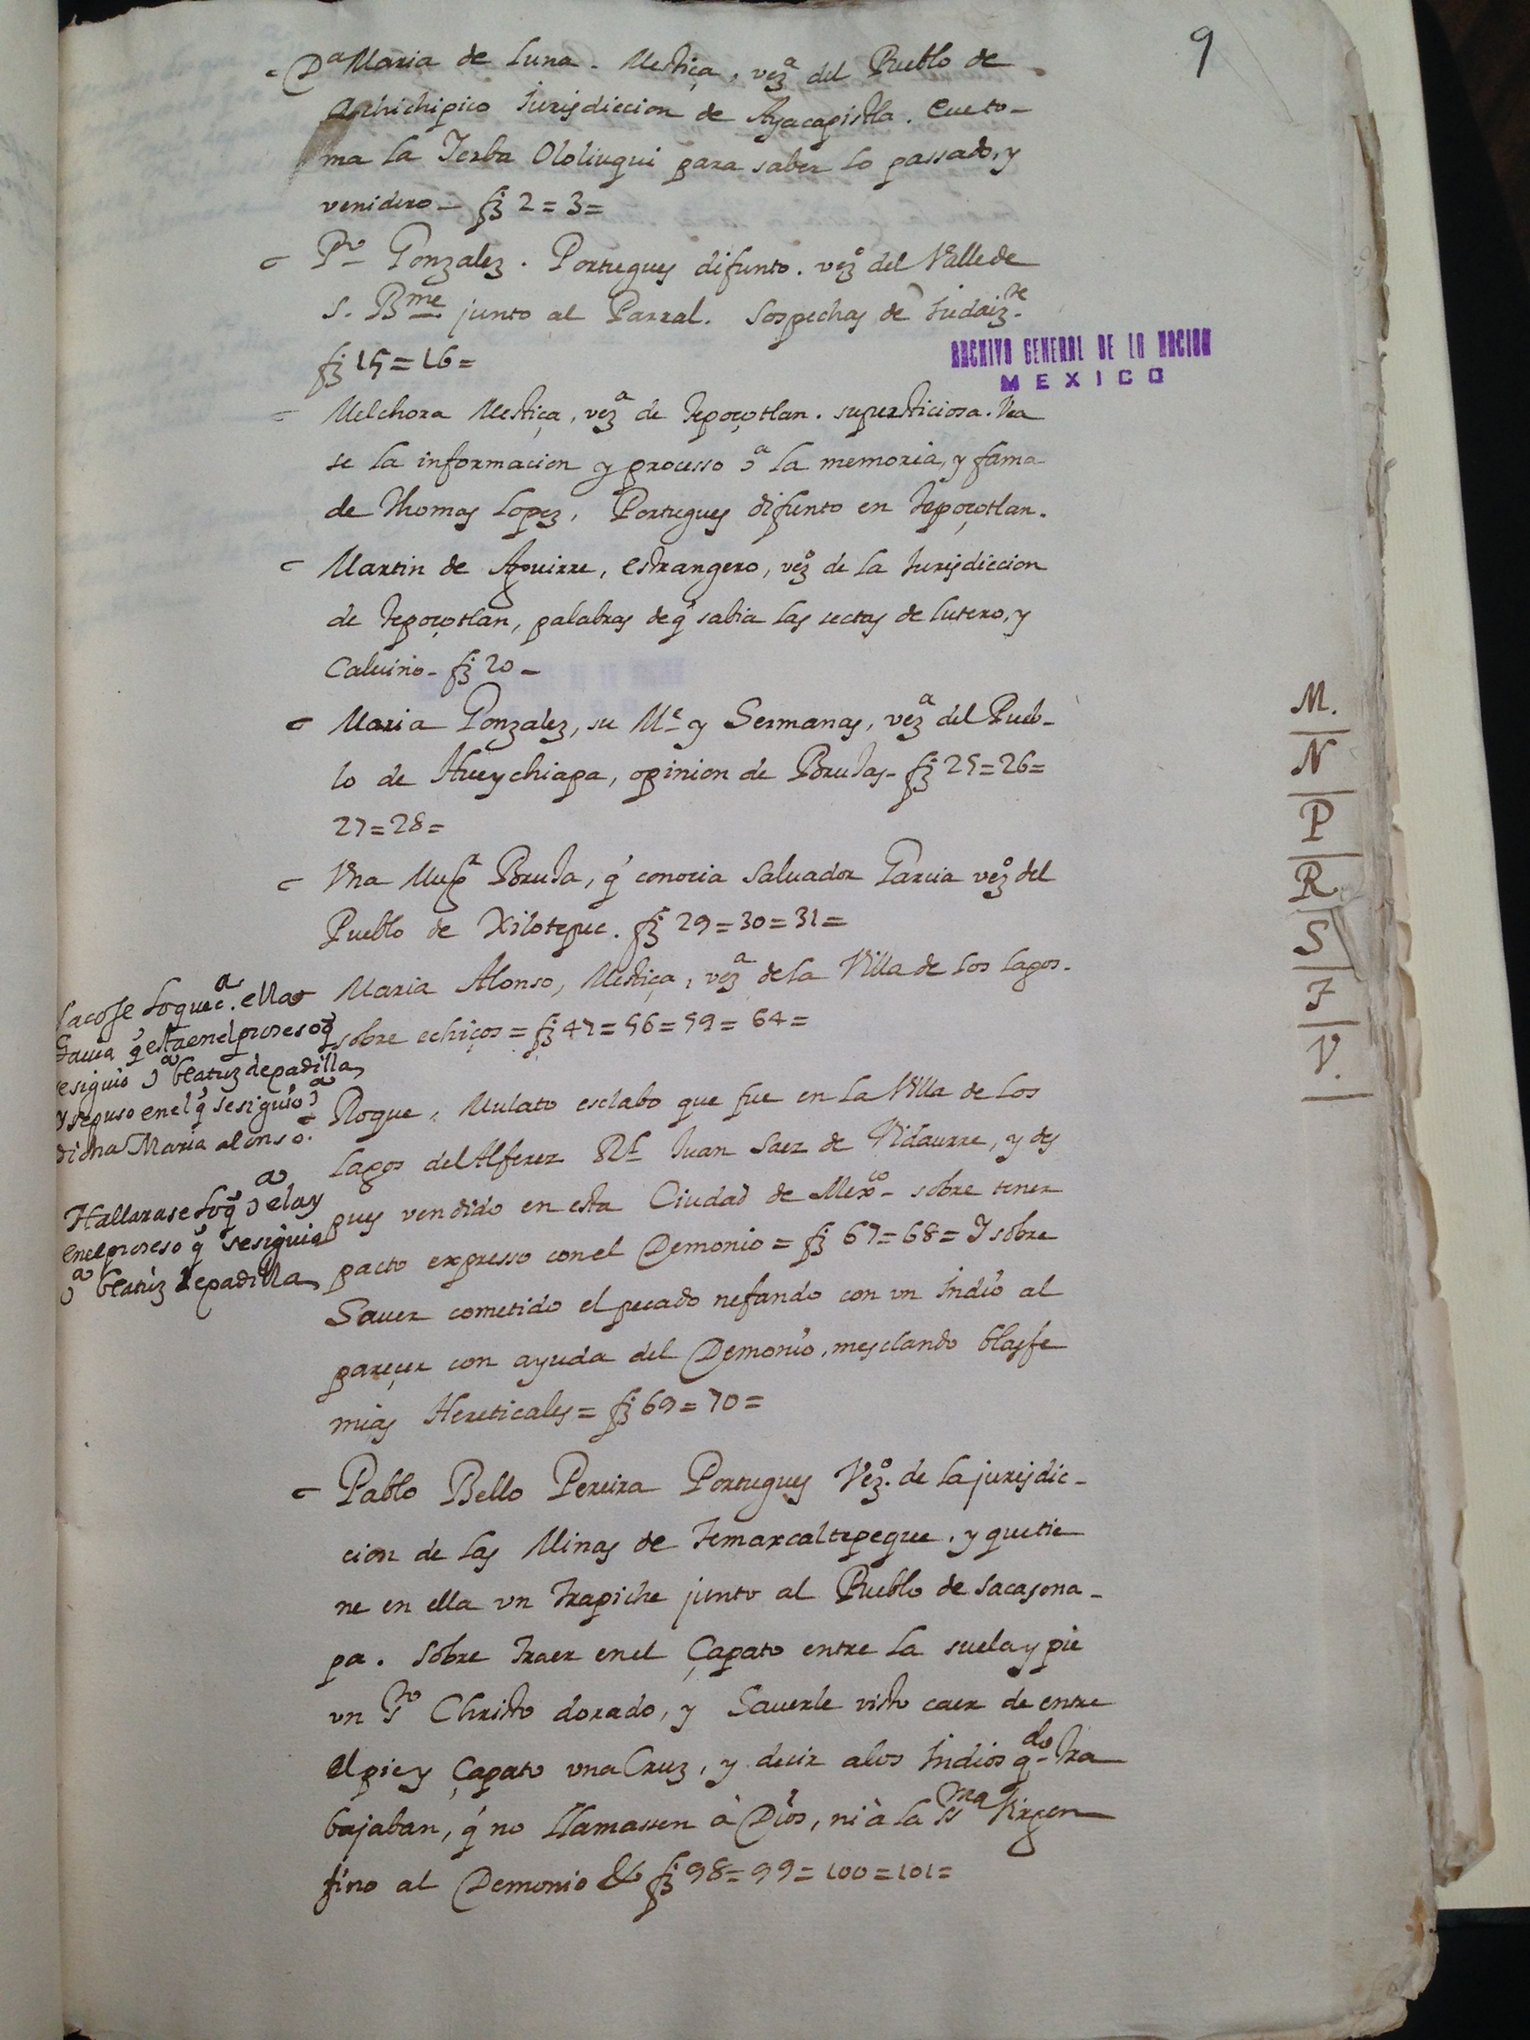 9
Dª Maria de Luna. Mestiça, vezª del Pueblo de
Achichipico Jurisdiccion de Ayacapistla. Que to-
ma la Yerba Ololiuqui para saber lo passado, y
venidero - fj 2 = 3 =
Pº Gonzalez. Portugues difunto. vezº del Valle de
S. Bme junto al Parral. Sospechas de Judaizte
fj 15 = 16 =
ARCHIVO GENERAL DE LA NACION
MEXICO
Melchora Mestiça, vezª de Tepoçotlan. supersticiosa. Vea
se la informacion y processo cª la memoria, y fama
de Thomas Lopez, Portugues difunto en Tepoçotlan.
Martin de Aguirre, estrangero, vezº de la Jurisdiccion
de Tepoçotlan, palabras de q̃ sabia las sectas de Lutero, y
Caluino - fj 20 -
Maria Gonzalez, su Me y Hermanas, vezª del Pueb-
lo de Hueychiapa, opinion de Brujas - fj 25 = 26 =
27 = 28 =
Vna Mugr Bruja, q̃ conocia Saluador Garcia vezº del
Pueblo de Xilotepec. fj 29 = 30 = 31 =
Maria Alonso, Mestiça, vezª de la Villa de los Lagos.
sobre echiços = fj 47 = 56 = 59 = 64 =
Sacose lo que cª. ella
hauia q̃ esta en el proceso q̃
se siguio cª beatriz de padilla
y se puso en el q̃ se siguio cª
dicha Maria alonso.
Roque, Mulato esclabo que fue en la Villa de los
Lagos del Alferez Rl Juan Saez de Vidaurre, y des
pues vendido en esta Ciudad de Mexco - sobre tener
pacto expresso con el Demonio = fj 67 = 68 = Y sobre
Hauer cometido el pecado nefando con vn Indio al
pareçer con ayuda del Demonio, mesclando blasfe
mias Hereticales = fj 69 = 70 =
Hallarase lo q̃ cª el ay
en el proceso q̃ se siguio
cª beatriz de padilla
Pablo Bello Pereira Portugues Vezº. de la jurisdic-
cion de las Minas de Temaxcaltepeque, y que tie
ne en ella vn Trapiche junto al Pueblo de Sacasona-
pa. Sobre traer en el Çapato entre la suela y pie
vn Sto Christo dorado, y Hauerle visto caer de entre
el pie y Çapato vna Cruz, y decir a los Indios qdo tra
bajaban, q̃ no llamassen à Dios, ni à la SSma Virgen
sino al Demonio & fj 98 = 99 = 100 = 101 =
M.
N
P
R
S
T
V.